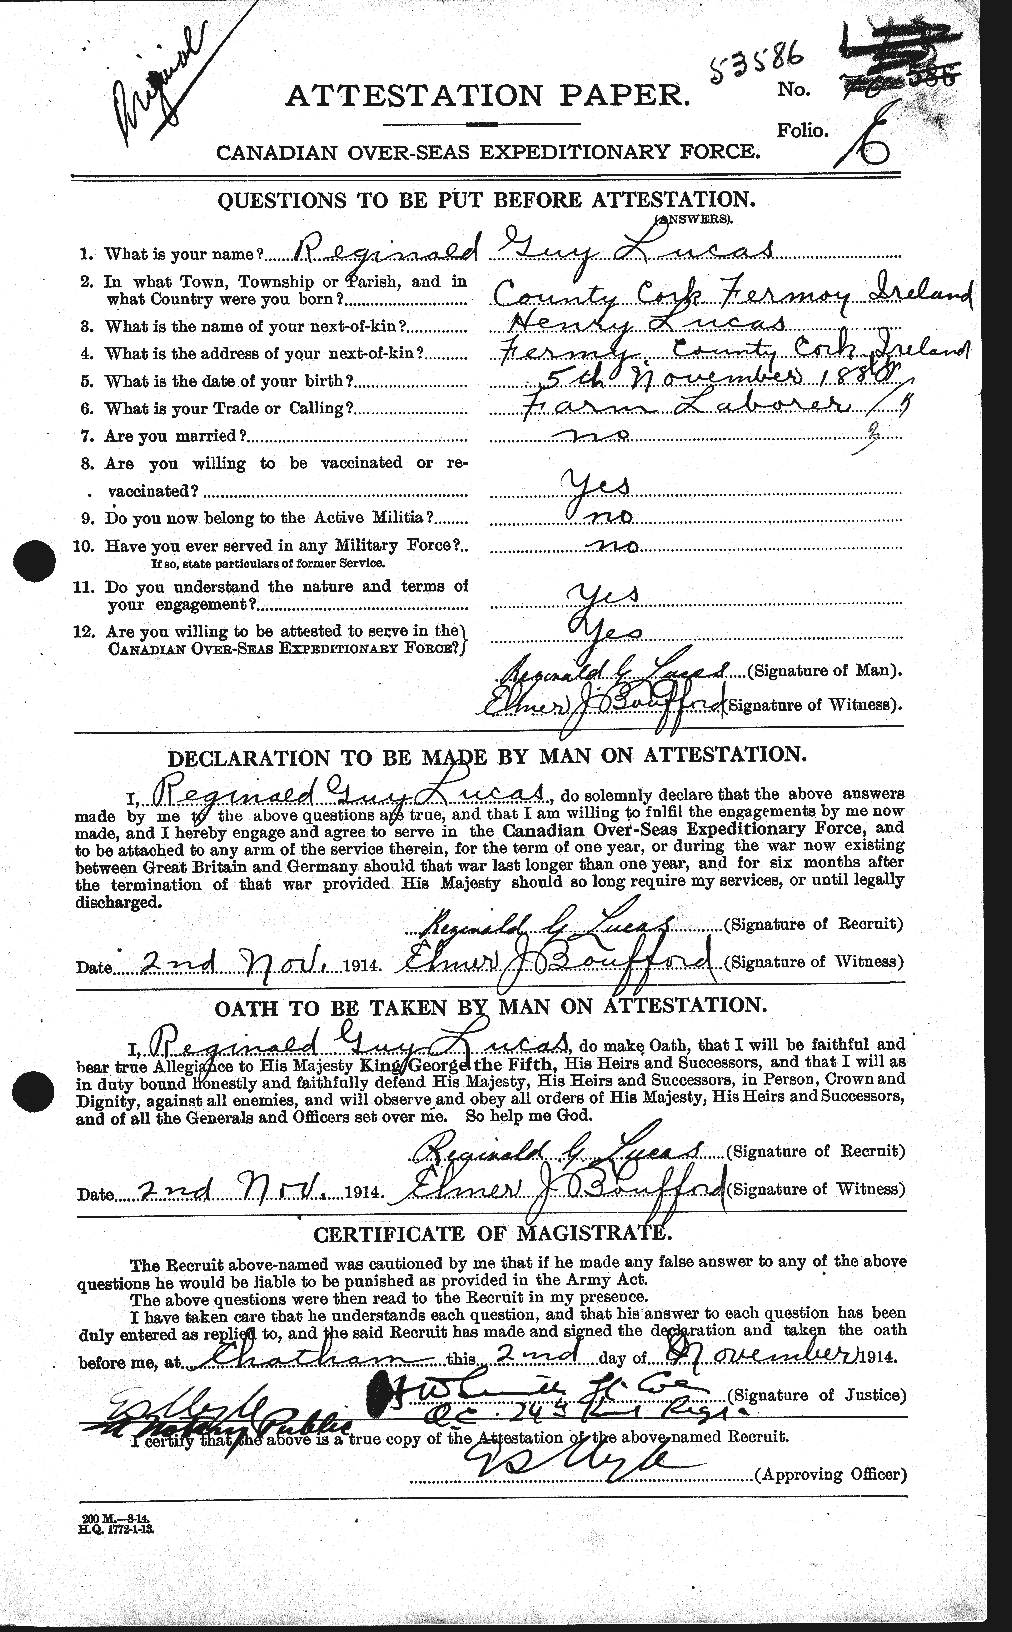 Original
53586
ATTESTATION PAPER.
No.
Folio. E
CANADIAN OVER-SEAS EXPEDITIONARY FORCE.
QUESTIONS TO BE PUT BEFORE ATTESTATION.
(ANSWERS).
1. What is your name? Reginald Guy Lucas
2. In what Town, Township or Parish, and in
what Country were you born? County Cork Fermoy Ireland
3. What is the name of your next-of-kin? Henry Lucas
4. What is the address of your next-of-kin? Fermy, County Cork, Ireland
5. What is the date of your birth? 5th November
6. What is your Trade or Calling? Farm Laborer
7. Are you married? no
8. Are you willing to be vaccinated or re-
vaccinated? Yes
9. Do you now belong to the Active Militia? no
10. Have you ever served in any Military Force? no
If so, state particulars of former Service.
11. Do you understand the nature and terms of
your engagement? Yes
12. Are you willing to be attested to serve in the
CANADIAN OVER-SEAS EXPEDITIONARY FORCE? Yes
Reginald G Lucas (Signature of Man).
Elmer J Boufford (Signature of Witness).
DECLARATION TO BE MADE BY MAN ON ATTESTATION.
I, Reginald Guy Lucas, do solemnly declare that the above answers
made by me to the above questions are true, and that I am willing to fulfil the engagements by me now
made, and I hereby engage and agree to serve in the Canadian Over-Seas Expeditionary Force, and
to be attached to any arm of the service therein, for the term of one year, or during the war now existing
between Great Britain and Germany should that war last longer than one year, and for six months after
the termination of that war provided His Majesty should so long require my services, or until legally
discharged.
Reginald G Lucas (Signature of Recruit)
Date 2nd Nov. 1914. Elmer J Boufford (Signature of Witness)
OATH TO BE TAKEN BY MAN ON ATTESTATION.
I, Reginald Guy Lucas, do make Oath, that I will be faithful and
bear true Allegiance to His Majesty King George the Fifth, His Heirs and Successors, and that I will as
in duty bound honestly and faithfully defend His Majesty, His Heirs and Successors, in Person, Crown and
Dignity, against all enemies, and will observe and obey all orders of His Majesty, His Heirs and Successors,
and of all the Generals and Officers set over me. So help me God.
Reginald G Lucas (Signature of Recruit)
Date 2nd Nov. 1914. Elmer J Boufford (Signature of Witness)
CERTIFICATE OF MAGISTRATE.
The Recruit above-named was cautioned by me that if he made any false answer to any of the above
questions he would be liable to be punished as provided in the Army Act.
The above questions were then read to the Recruit in my presence.
I have taken care that he understands each question, and that his answer to each question has been
duly entered as replied to, and the said Recruit has made and signed the declaration and taken the oath
before me, at Chatham this 2nd day of November 1914.
(Signature of Justice)
A Notary Public
I certify that the above is a true copy of the Attestation of the above-named Recruit.
(Approving Officer)
200 M.—8-14.
H.Q. 1772-1-13.